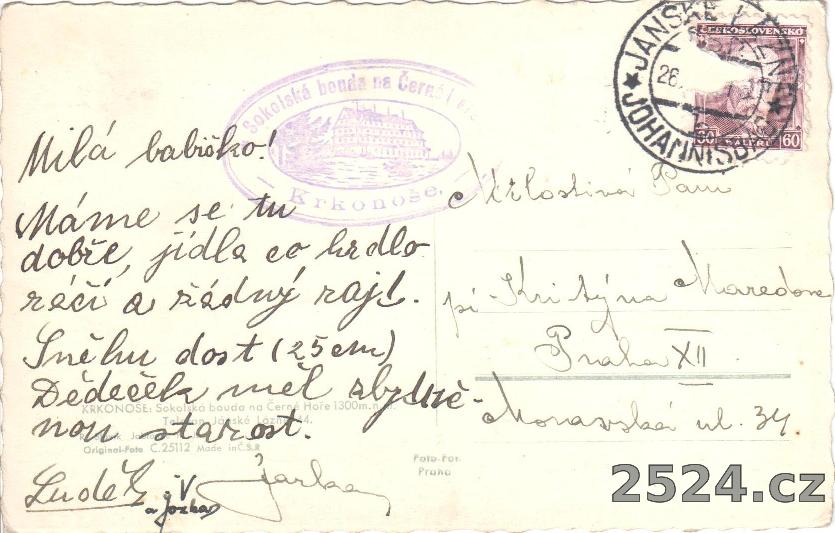 Milá babičko!
Máme se tu
dobře, jídla co hrdlo
ráčí a žádný rajt.
Sněhu dost (25 cm)
Dědeček měl zbyteč-
nou starost.
Luděk
a Jozka
Jarka
Sokolská bouda na Černé
Krkonoše.
JANSKÉ LÁZNĚ
JOHANNISB
26.
ČESKOSLOVENSKO
60 60
Milostivá Paní
pí Kristýna Maredova
Praha XII
Moravská ul. 34
KRKONOŠE: Sokolská bouda na Černé Hoře 1300m.n.
Janské Lázně 44.
Original-Foto C.25112 Made in Č.S.R
Foto-Fot.
Praha
2524.cz